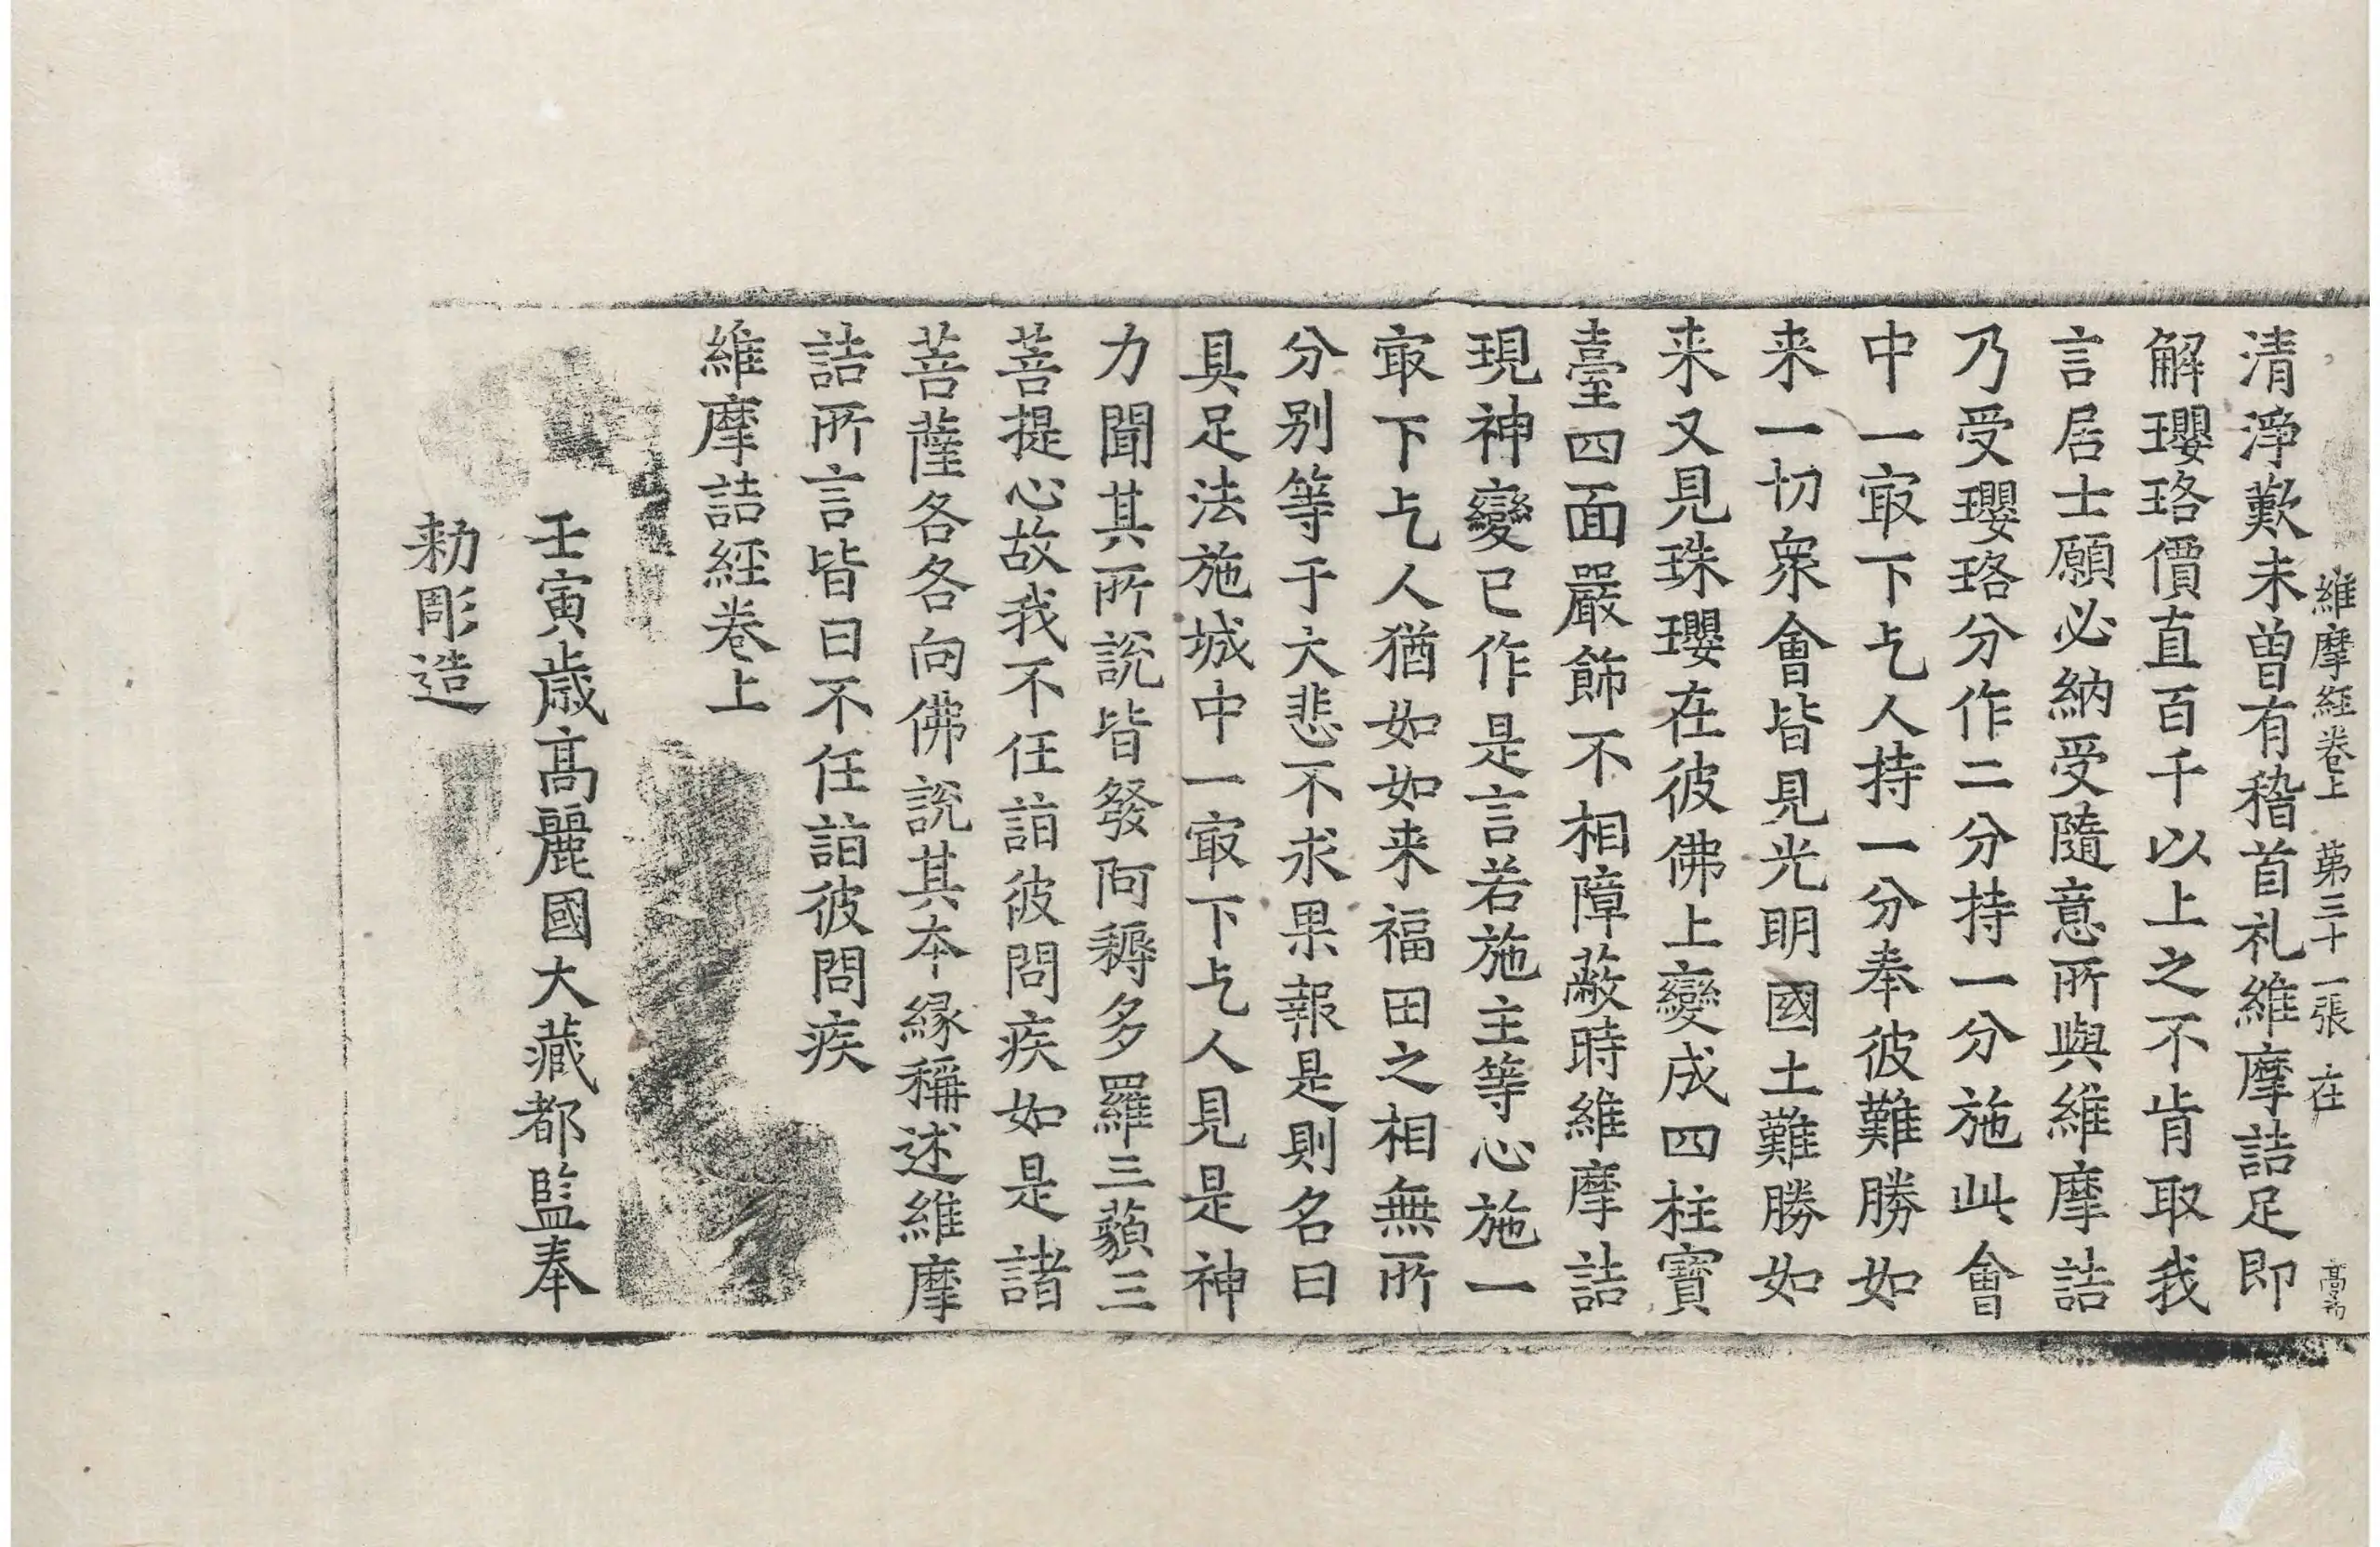 維摩経卷上 苐三十一張 在
清淨歎未曾有稽首礼維摩詰足即
解瓔珞價直百千以上之不肯取我
言居士願必納受隨意所與維摩詰
乃受瓔珞分作二分持一分施此會
中一冣下乞人持一分奉彼難勝如
来一切衆會皆見光明國土難勝如
来又見珠瓔在彼佛上變成四柱寶
臺四面嚴飾不相障蔽時維摩詰
現神變已作是言若施主等心施一
冣下乞人猶如如来福田之相無所
分別等于大悲不求果報是則名曰
具足法施城中一冣下乞人見是神
力聞其所說皆發阿耨多羅三藐三
菩提心故我不任詣彼問疾如是諸
菩薩各各向佛說其本緣稱述維摩
詰所言皆曰不任詣彼問疾
維摩詰經卷上
壬寅歳高麗國大藏都監奉
勑彫造